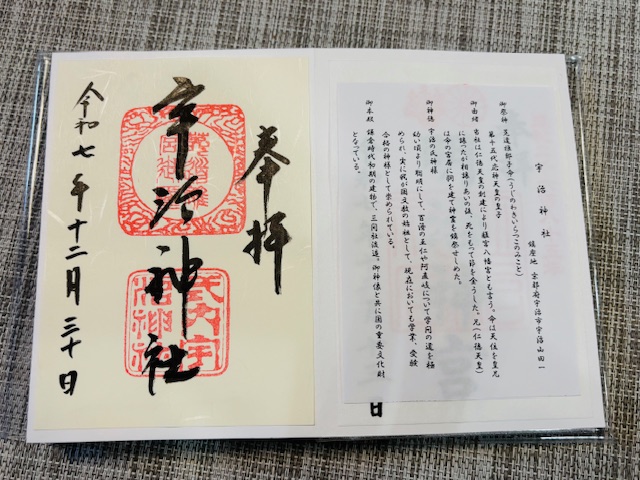 宇治神社
鎮座地 京都府宇治市宇治山田一
御祭神 菟道稚郎子命(うじのわきいらつこのみこと)
第十五代応神天皇の皇子
御由緒 当社は仁徳天皇の創建により離宮八幡宮とも言う。命は天位を皇兄
に譲ったが相譲りあいの後、死をもって節を全うした。兄(仁徳天皇)
は命の宮居に祠を建て神霊を鎮祭せしめた。
御神徳 宇治の氏神様
幼い頃より聡明にして、百済の王仁や阿直岐について学問の道を極
められ、実に我が国文教の始祖として、現在においても学業、受験
合格の神様として崇められている。
御本殿 鎌倉時代初期の建物で、三間社流造。御神像と共に国の重要文化財
となっている。
日
奉拝
宇治神社
令和七年十二月三十日